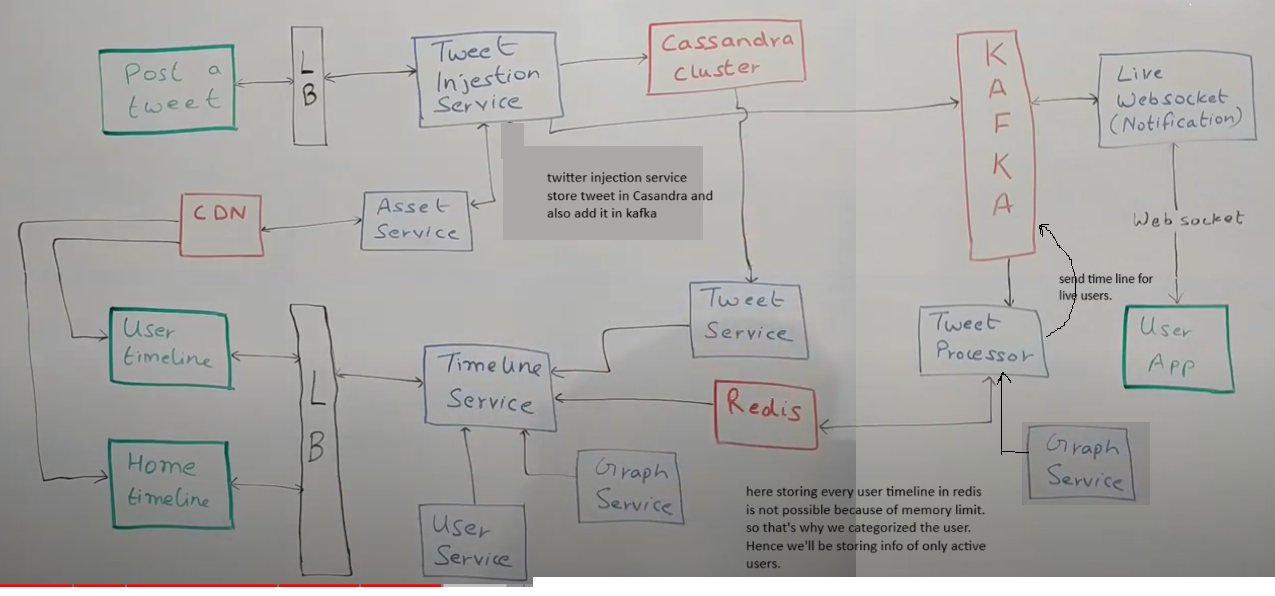 Post a
tweet
L
B
Tweet
Injestion
Service
Cassandra
Cluster
K
A
F
K
A
Live
Websocket
(Notification)
twitter injection service
store tweet in Casandra and
also add it in kafka
CDN
Asset
Service
Web socket
send time line for
live users.
User
timeline
Home
timeline
L
B
Timeline
Service
Tweet
Service
Redis
Tweet
Processor
User
App
Graph
Service
Graph
Service
User
Service
here storing every user timeline in redis
is not possible because of memory limit.
so that's why we categorized the user.
Hence we'll be storing info of only active
users.